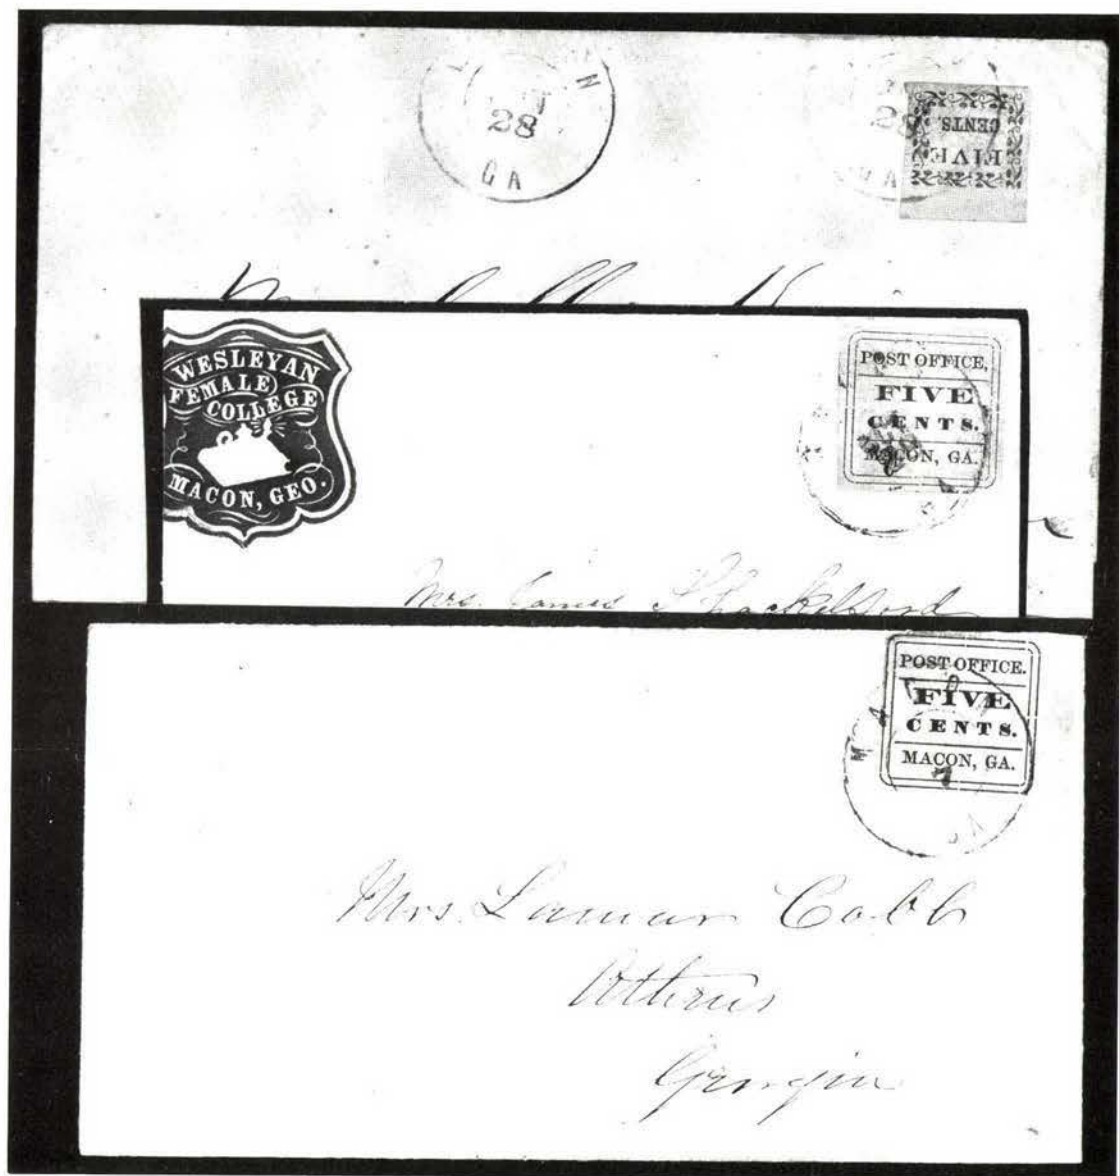 28
GA
28
CENTS.
FIVE
WESLEYAN
FEMALE
COLLEGE
MACON, GEO.
POST OFFICE,
FIVE
CENTS.
MACON, GA.
Mrs. James Shackelford
POST OFFICE.
FIVE
CENTS.
MACON, GA.
Mrs. Lamar Cobb
Athens
Georgia